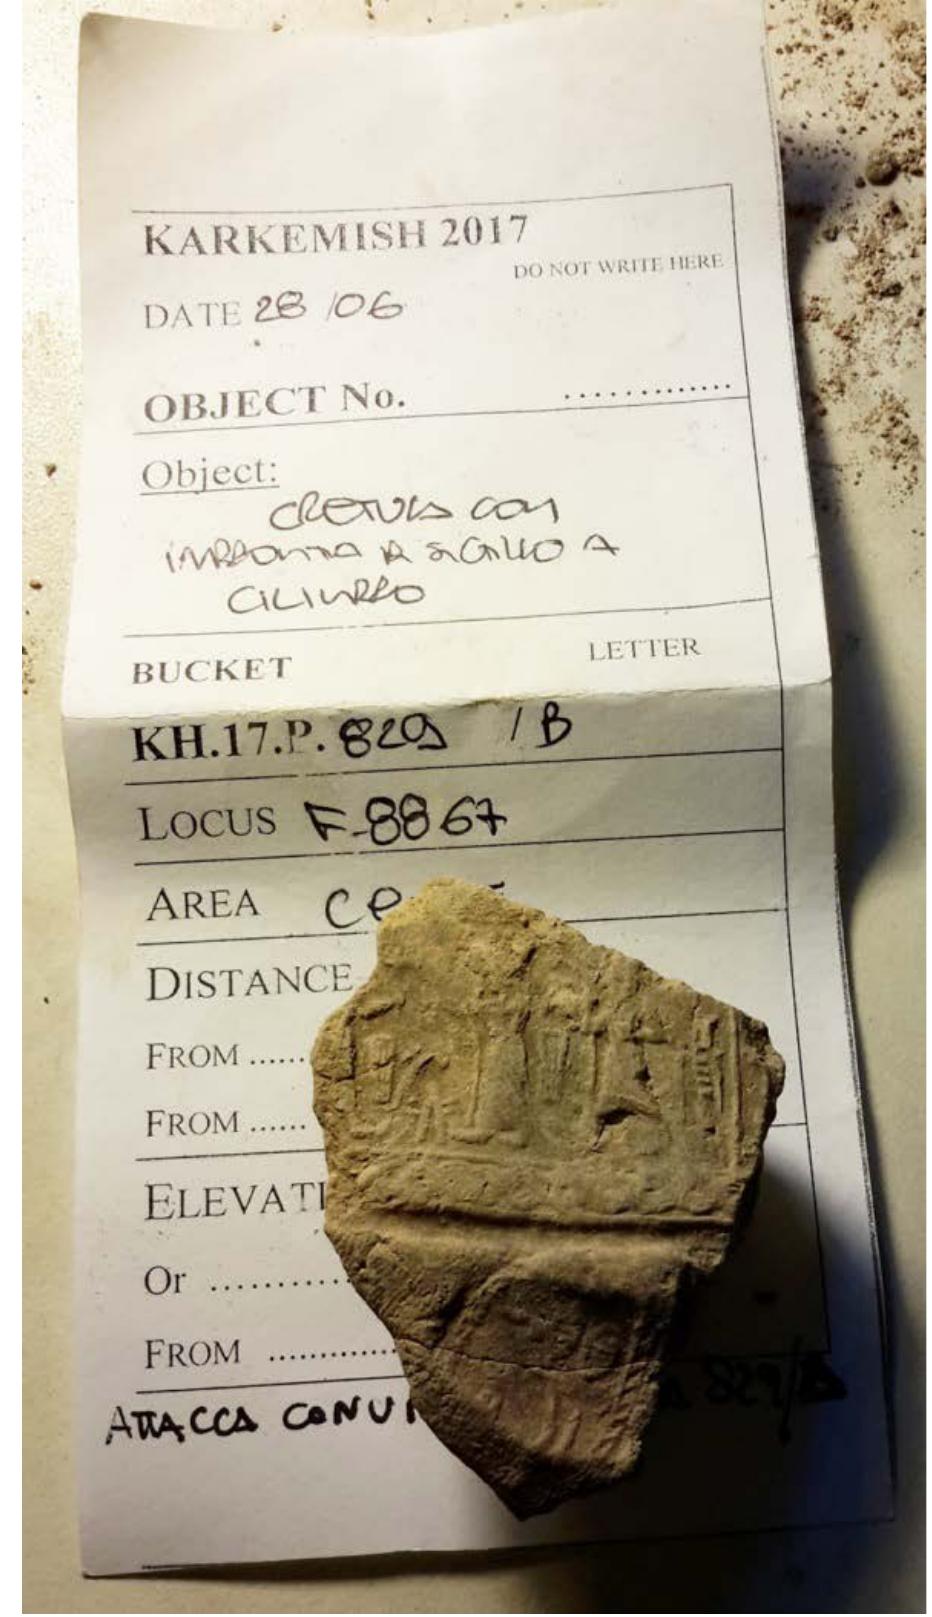 KARKEMISH 2017
DO NOT WRITE HERE
DATE 28/06
OBJECT No. .............
Object:
CRETULA CON
IMPRONTA DI SIGILLO A
CILINDRO
BUCKET LETTER
KH.17.P. 829 / B
LOCUS F.8867
AREA
DISTANCE
FROM ......
FROM ......
ELEVATI
Or ..........
FROM .............
ATTACCA CON